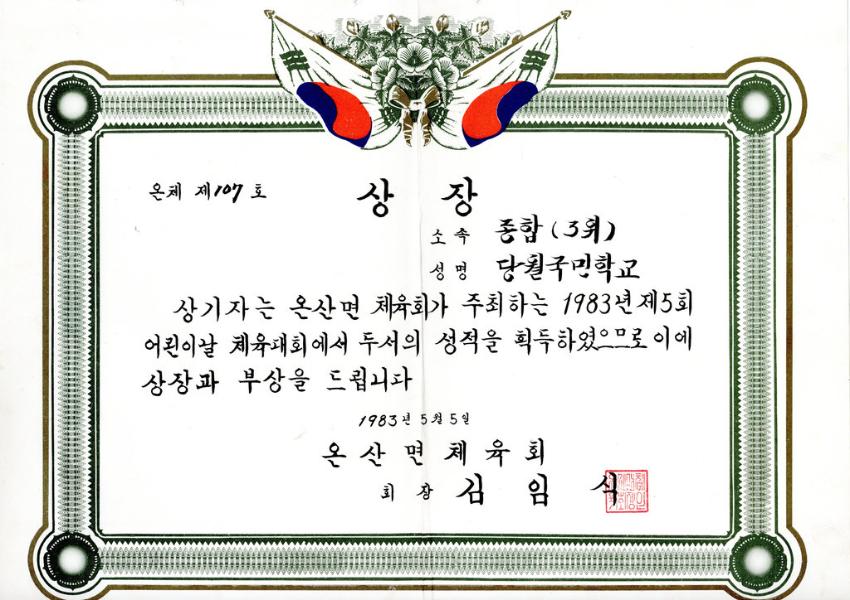 온체 제107호
상 장
소속 종합(3위)
성명 당월국민학교
상기자는 온산면 체육회가 주최하는 1983년 제5회
어린이날 체육대회에서 두서의 성적을 획득하였으므로 이에
상장과 부상을 드립니다
1983년 5월 5일
온산면체육회
회장 김임식